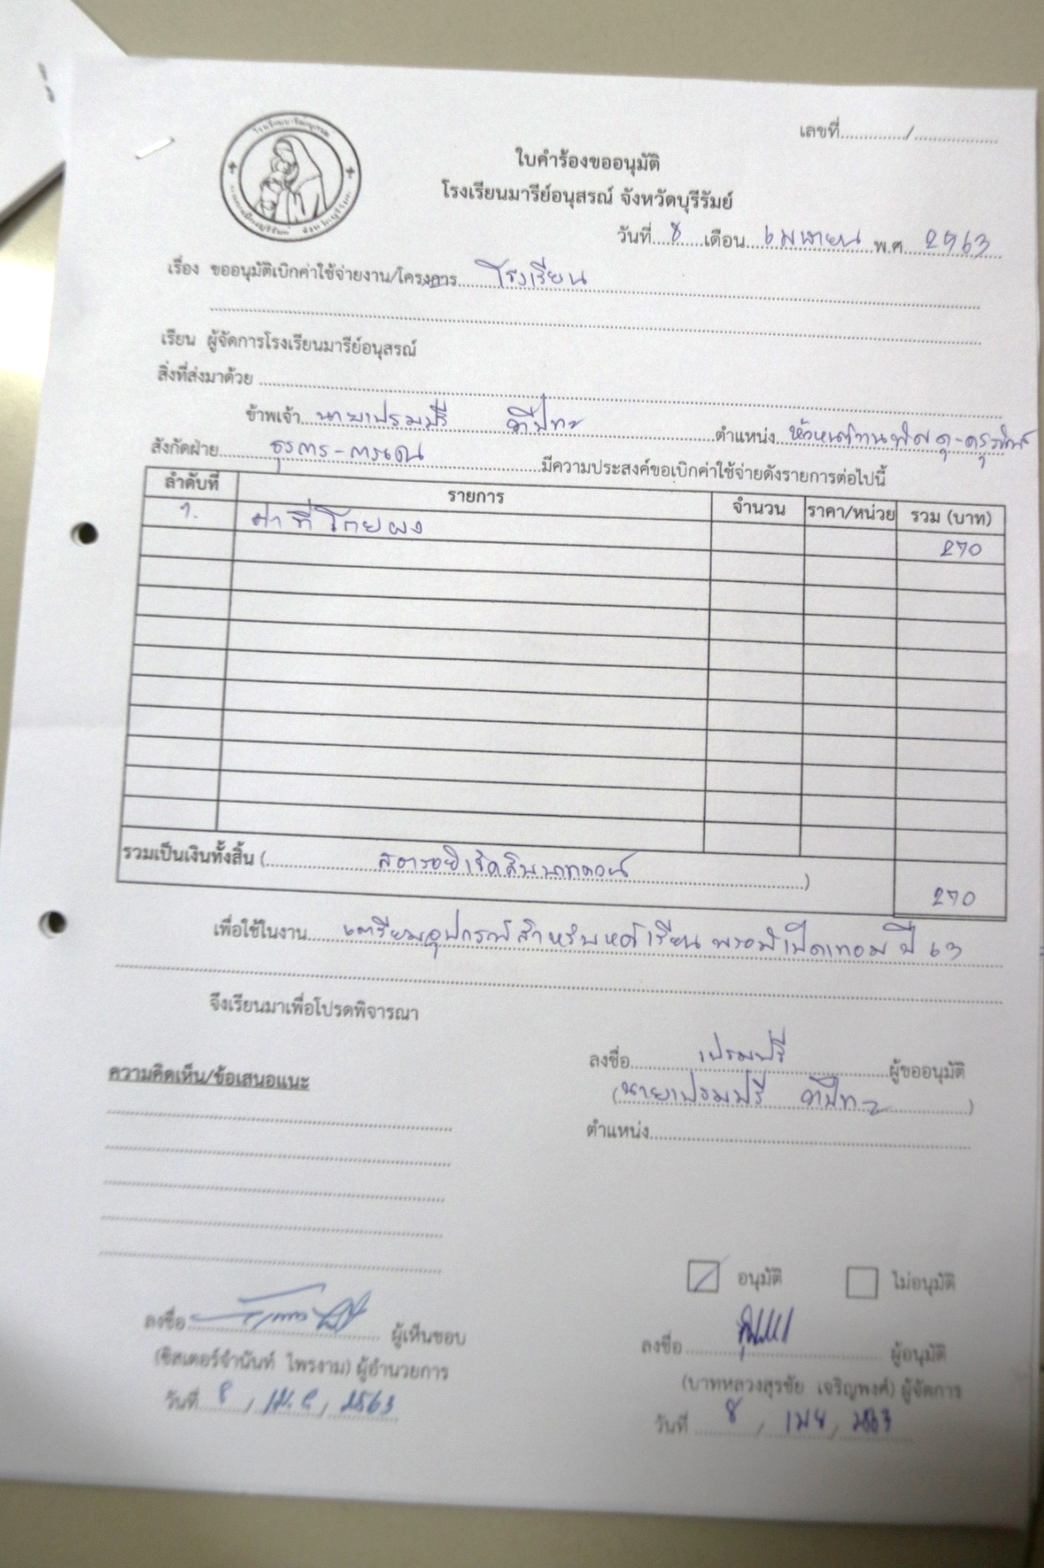 เลขที่............/................
ใบคำร้องขออนุมัติ
โรงเรียนมารีย์อนุสรณ์ จังหวัดบุรีรัมย์
วันที่ 8 เดือน เมษายน พ.ศ. 2563
เรื่อง ขออนุมัติเบิกค่าใช้จ่ายงาน/โครงการ โรงเรียน
เรียน ผู้จัดการโรงเรียนมารีย์อนุสรณ์
สิ่งที่ส่งมาด้วย
ข้าพเจ้า นายเปรมปรี ตำแหน่ง หัวหน้างานพัสดุ-ครุภัณฑ์
สังกัดฝ่าย ธุรการ-การเงิน มีความประสงค์ขอเบิกค่าใช้จ่ายดังรายการต่อไปนี้
ลำดับที่ รายการ จำนวน ราคา/หน่วย รวม (บาท)
1. ผง 270
รวมเป็นเงินทั้งสิ้น ( สองร้อยเจ็ดสิบบาทถ้วน ) 270
เพื่อใช้ในงาน เตรียมอุปกรณ์สำหรับห้องเรียน พร้อมเปิดเทอม ปี 63
จึงเรียนมาเพื่อโปรดพิจารณา
ลงชื่อ เปรมปรี ผู้ขออนุมัติ
(นายเปรมปรี )
ตำแหน่ง
ความคิดเห็น/ข้อเสนอแนะ
อนุมัติ ไม่อนุมัติ
ลงชื่อ ผู้เห็นชอบ
(ซิสเตอร์จำนันท์ ไพรงาม) ผู้อำนวยการ
วันที่ 8 / เม.ย / 2563
ลงชื่อ ผู้อนุมัติ
(บาทหลวงสุรชัย เจริญพงศ์) ผู้จัดการ
วันที่ 8 / เมย / 2563